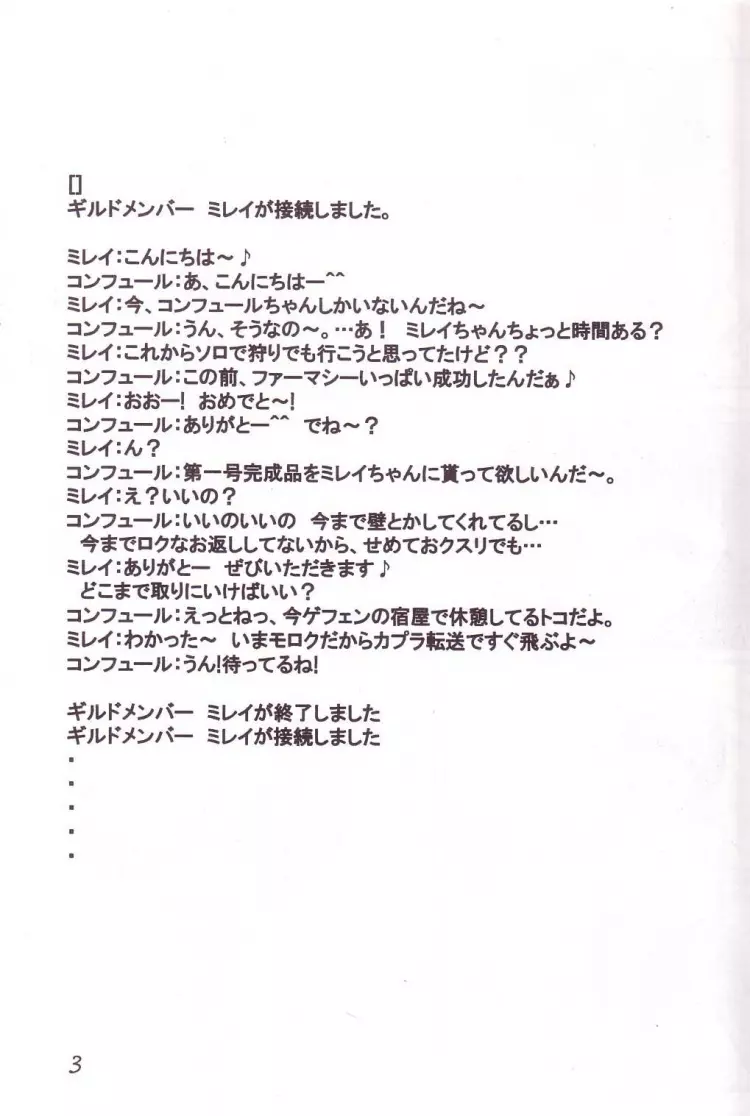 []
ギルドメンバー　ミレイが接続しました。
ミレイ：こんにちは～♪
コンフュール：あ、こんにちはー^^
ミレイ：今、コンフュールちゃんしかいないんだね～
コンフュール：うん、そうなの～。…あ！　ミレイちゃんちょっと時間ある？
ミレイ：これからソロで狩りでも行こうと思ってたけど？？
コンフュール：この前、ファーマシーいっぱい成功したんだぁ♪
ミレイ：おおー!　おめでと～!
コンフュール：ありがとー^^　でね～？
ミレイ：ん？
コンフュール：第一号完成品をミレイちゃんに貰って欲しいんだ～。
ミレイ：え？いいの？
コンフュール：いいのいいの　今まで壁とかしてくれてるし…
今までロクなお返ししてないから、せめておクスリでも…
ミレイ：ありがとー　ぜひいただきます♪
どこまで取りにいけばいい？
コンフュール：えっとねっ、今ゲフェンの宿屋で休憩してるトコだよ。
ミレイ：わかった～　いまモロクだからカプラ転送ですぐ飛ぶよ～
コンフュール：うん!待ってるね!
ギルドメンバー　ミレイが終了しました
ギルドメンバー　ミレイが接続しました
・
・
・
・
・
3